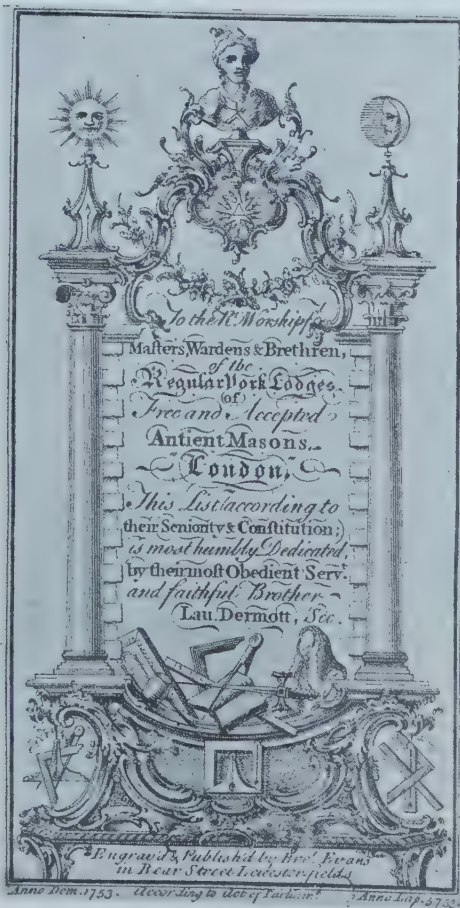 To the Rt. Worshipf.
Masters, Wardens & Brethren,
of the
Regular York Lodges
(of)
Free and Accepted
Antient Masons,
London,
This List (according to
their Seniority & Constitution;)
is most humbly Dedicated,
by their most Obedient Servt.
and faithful Brother
Lau. Dermott, Sec.
Engrav'd & Publish'd by Bror. Evans
in Bear Street Leicester-fields
Anno Dom. 1753. According to Act of Parliamt. Anno Lap.